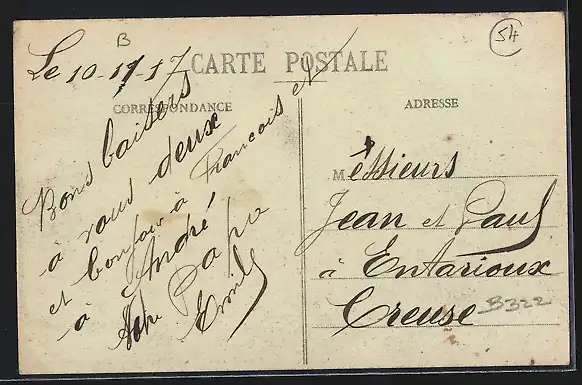 B
54
Le 10-11-17
CARTE POSTALE
CORRESPONDANCE
ADRESSE
Bons baisers
à vous deux
et bonjour à Francois et
à André
Votre Papa
Emile
Messieurs
Jean et Paul
à Entarioux
Creuse
B322